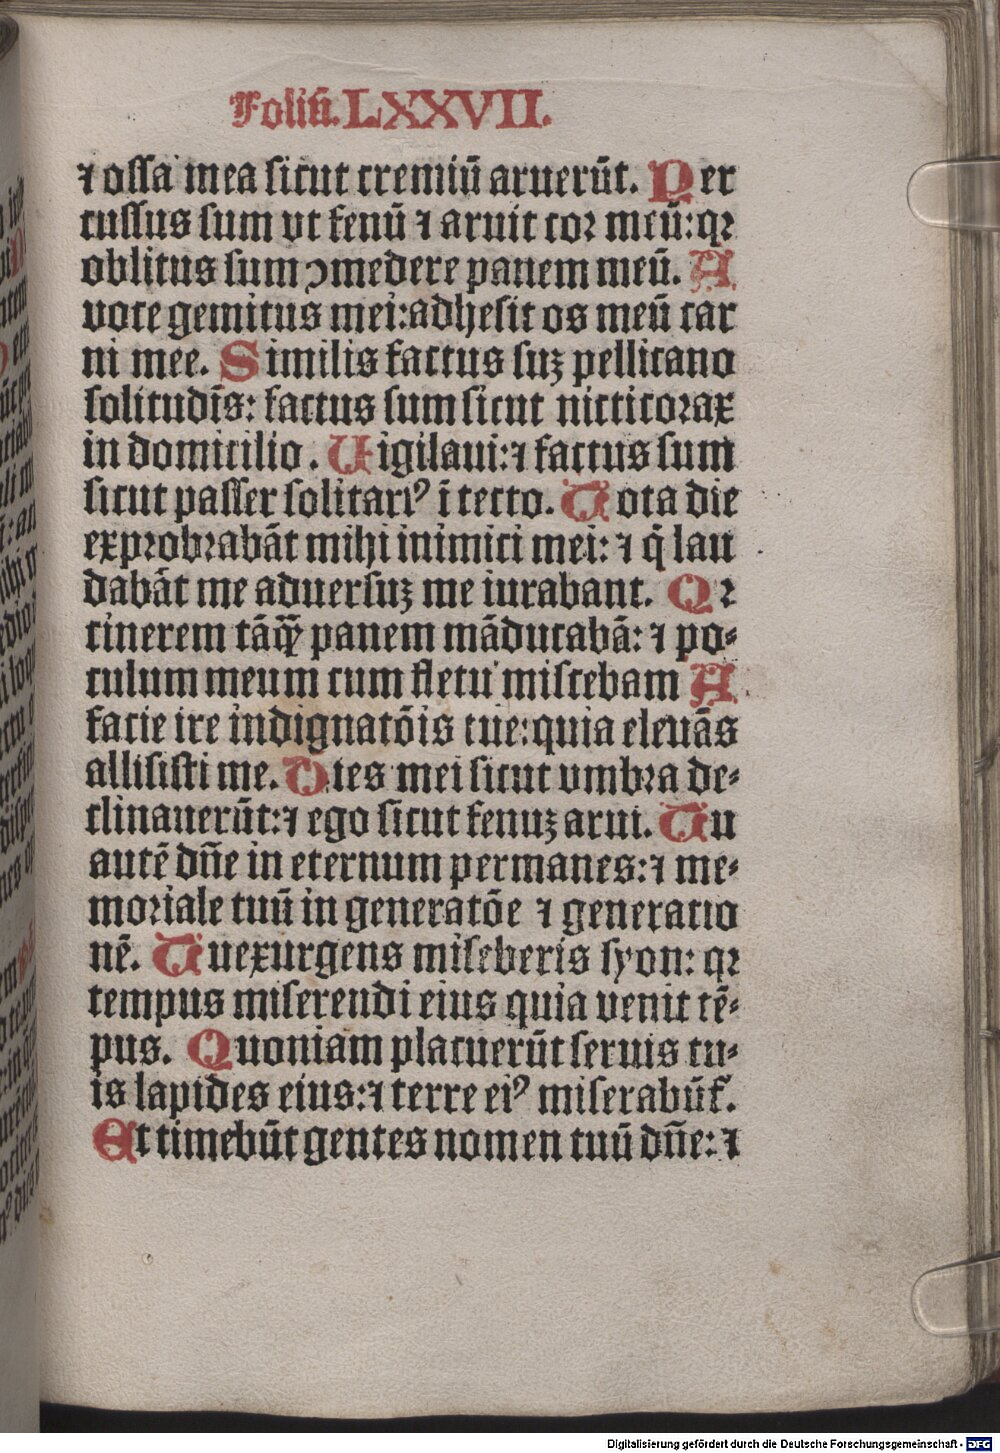 Foliū. LXXVII.
⁊ ossa mea sicut cremiū aruerūt. Per
cussus sum vt fenū ⁊ aruit cor meū: qꝛ
oblitus sum ↄmedere panem meū. A
voce gemitus mei: adhesit os meū car
ni mee. Similis factus suꝫ pellicano
solitudīs: factus sum sicut nicticorax
in domicilio. Uigilaui: ⁊ factus sum
sicut passer solitariꝰ ī tecto. Tota die
exprobrabāt mihi inimici mei: ⁊ q̄ lau
dabāt me aduersuꝫ me iurabant. Qꝛ
cinerem tāqꝫ̄ panem māducabā: ⁊ po⸗
culum meum cum fletu miscebam A
facie ire indignatōis tue: quia eleuās
allisisti me. Dies mei sicut umbra de⸗
clinauerūt: ⁊ ego sicut fenuꝫ arui. Tu
autē dn̄e in eternum permanes: ⁊ me⸗
moriale tuū in generatōe ⁊ generatio
nē. Tu exurgens misereberis syon: qꝛ
tempus miserendi eius quia venit tē⸗
pus. Quoniam placuerūt seruis tu⸗
is lapides eius: ⁊ terre eiꝰ miserabūt̉.
Et timebūt gentes nomen tuū dn̄e: ⁊
Digitalisierung gefördert durch die Deutsche Forschungsgemeinschaft - DFG